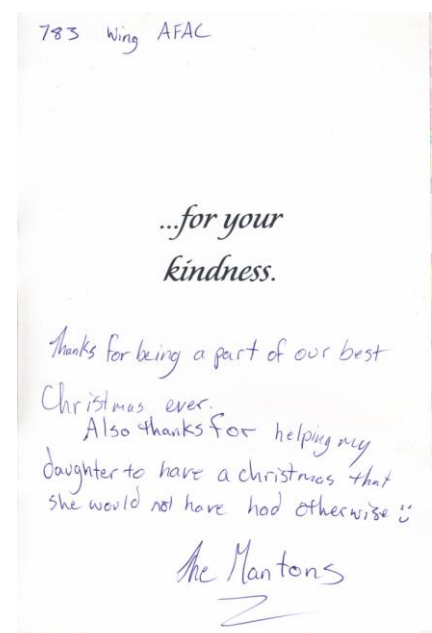 783 Wing AFAC
...for your
kindness.
Thanks for being a part of our best
Christmas ever.
Also thanks for helping my
daughter to have a christmas that
she would not have had otherwise
The Mantons